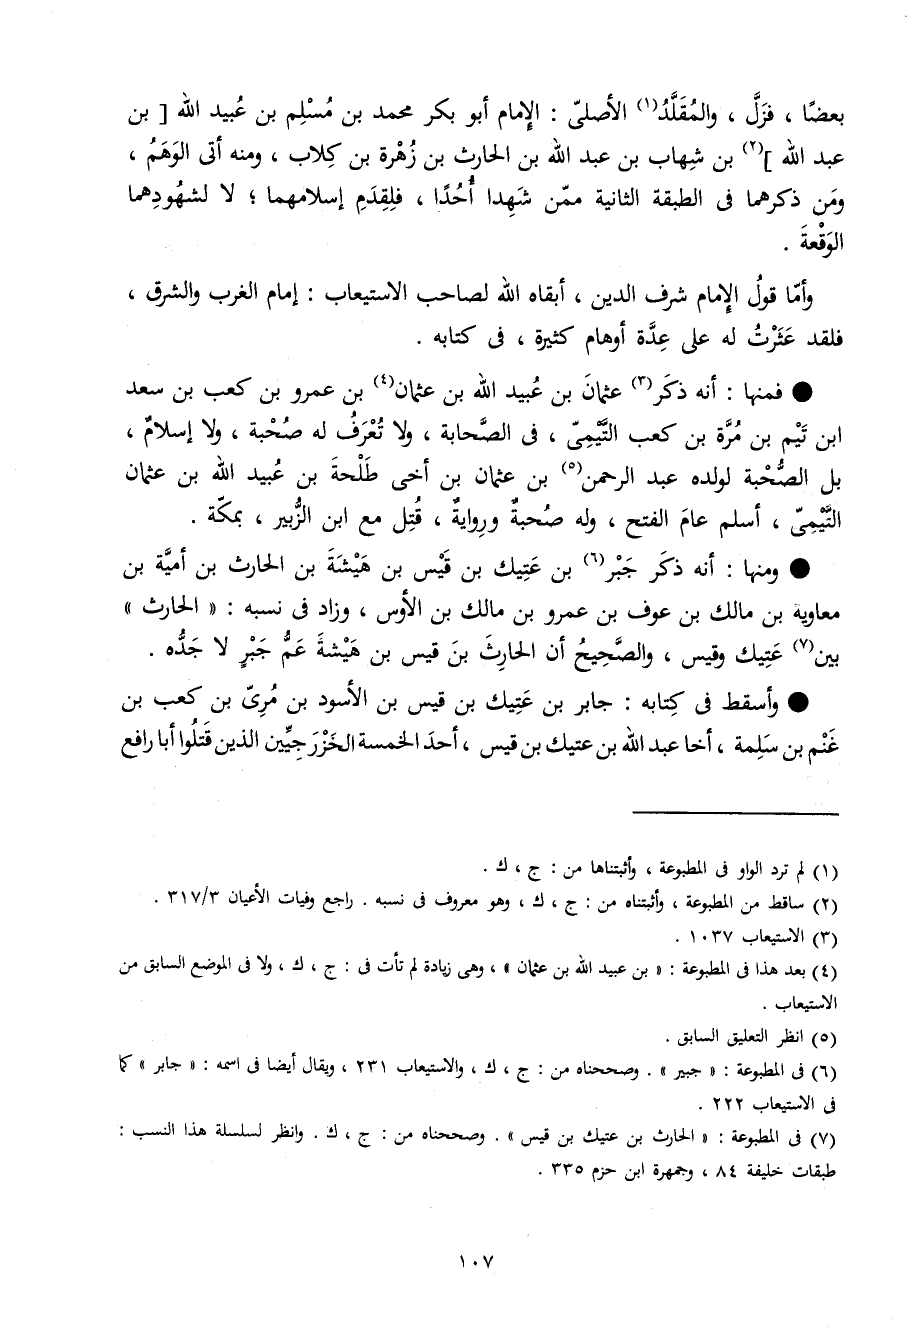 بعضًا ، فزَلَّ ، والمُقَلَّدُ(١) الأصلىّ : الإِمام أبو بكر محمد بن مُسْلِم بن عُبيد الله [ بن
عبد الله ](٢) بن شِهاب بن عبد الله بن الحارث بن زُهْرة بن كِلاب ، ومنه أتى الوَهَمُ ،
ومَن ذكرهما فى الطبقة الثانية ممّن شَهِدا أُحُدًا ، فلِقِدَمِ إسلامهما ؛ لا لشهُودِهما
الوَقْعةَ .
وأمّا قولُ الإِمام شرف الدين ، أبقاه الله لصاحب الاستيعاب : إمام الغرب والشرق ،
فلقد عَثَرْتُ له على عِدَّة أوهام كثيرة ، فى كتابه .
● فمنها : أنه ذكَر(٣) عثمانَ بن عُبيد الله بن عثمان(٤) بن عمرو بن كعب بن سعد
ابن تَيْم بن مُرَّة بن كعب التَّيْمِىّ ، فى الصَّحابة ، ولا تُعْرَفُ له صُحْبة ، ولا إسلامٌ ،
بل الصُّحْبة لولده عبد الرحمن(٥) بن عثمان بن أخى طَلْحةَ بن عُبيد الله بن عثمان
التَّيْمِىّ ، أسلم عامَ الفتح ، وله صُحبةٌ ورِوايةٌ ، قُتِل مع ابن الزُّبير ، بمكّة .
● ومنها : أنه ذكَر جَبْر(٦) بن عَتِيك بن قَيْس بن هَيْشَةَ بن الحارث بن أميَّة بن
معاوية بن مالك بن عوف بن عمرو بن مالك بن الأوس ، وزاد فى نسبه : « الحارث »
بين(٧) عَتِيك وقيس ، والصَّحِيحُ أن الحارِثَ بنَ قيس بن هَيْشةَ عَمُّ جَبْرٍ لا جَدُّه .
● وأسقط فى كِتابه : جابر بن عَتِيك بن قيس بن الأسود بن مُرِىّ بن كعب بن
غَنْم بن سَلِمة ، أخا عبد الله بن عتيك بن قيس ، أحدَ الخمسة الخَزْرَجِيِّين الذين قَتَلُوا أبا رافع
(١) لم ترد الواو فى المطبوعة ، وأثبتناها من : ج ، ك .
(٢) ساقط من المطبوعة ، وأثبتناه من : ج ، ك ، وهو معروف فى نسبه . راجع وفيات الأعيان ٣١٧/٣ .
(٣) الاستيعاب ١٠٣٧ .
(٤) بعد هذا فى المطبوعة : « بن عبيد الله بن عثمان » ، وهى زيادة لم تأت فى : ج ، ك ، ولا فى الموضع السابق من
الاستيعاب .
(٥) انظر التعليق السابق .
(٦) فى المطبوعة : « جبير » . وصححناه من : ج ، ك ، والاستيعاب ٢٣١ ، ويقال أيضا فى اسمه : « جابر » كما
فى الاستيعاب ٢٢٢ .
(٧) فى المطبوعة : « الحارث بن عتيك بن قيس » . وصححناه من : ج ، ك . وانظر لسلسلة هذا النسب :
طبقات خليفة ٨٤ ، وجمهرة ابن حزم ٣٣٥ .
١٠٧